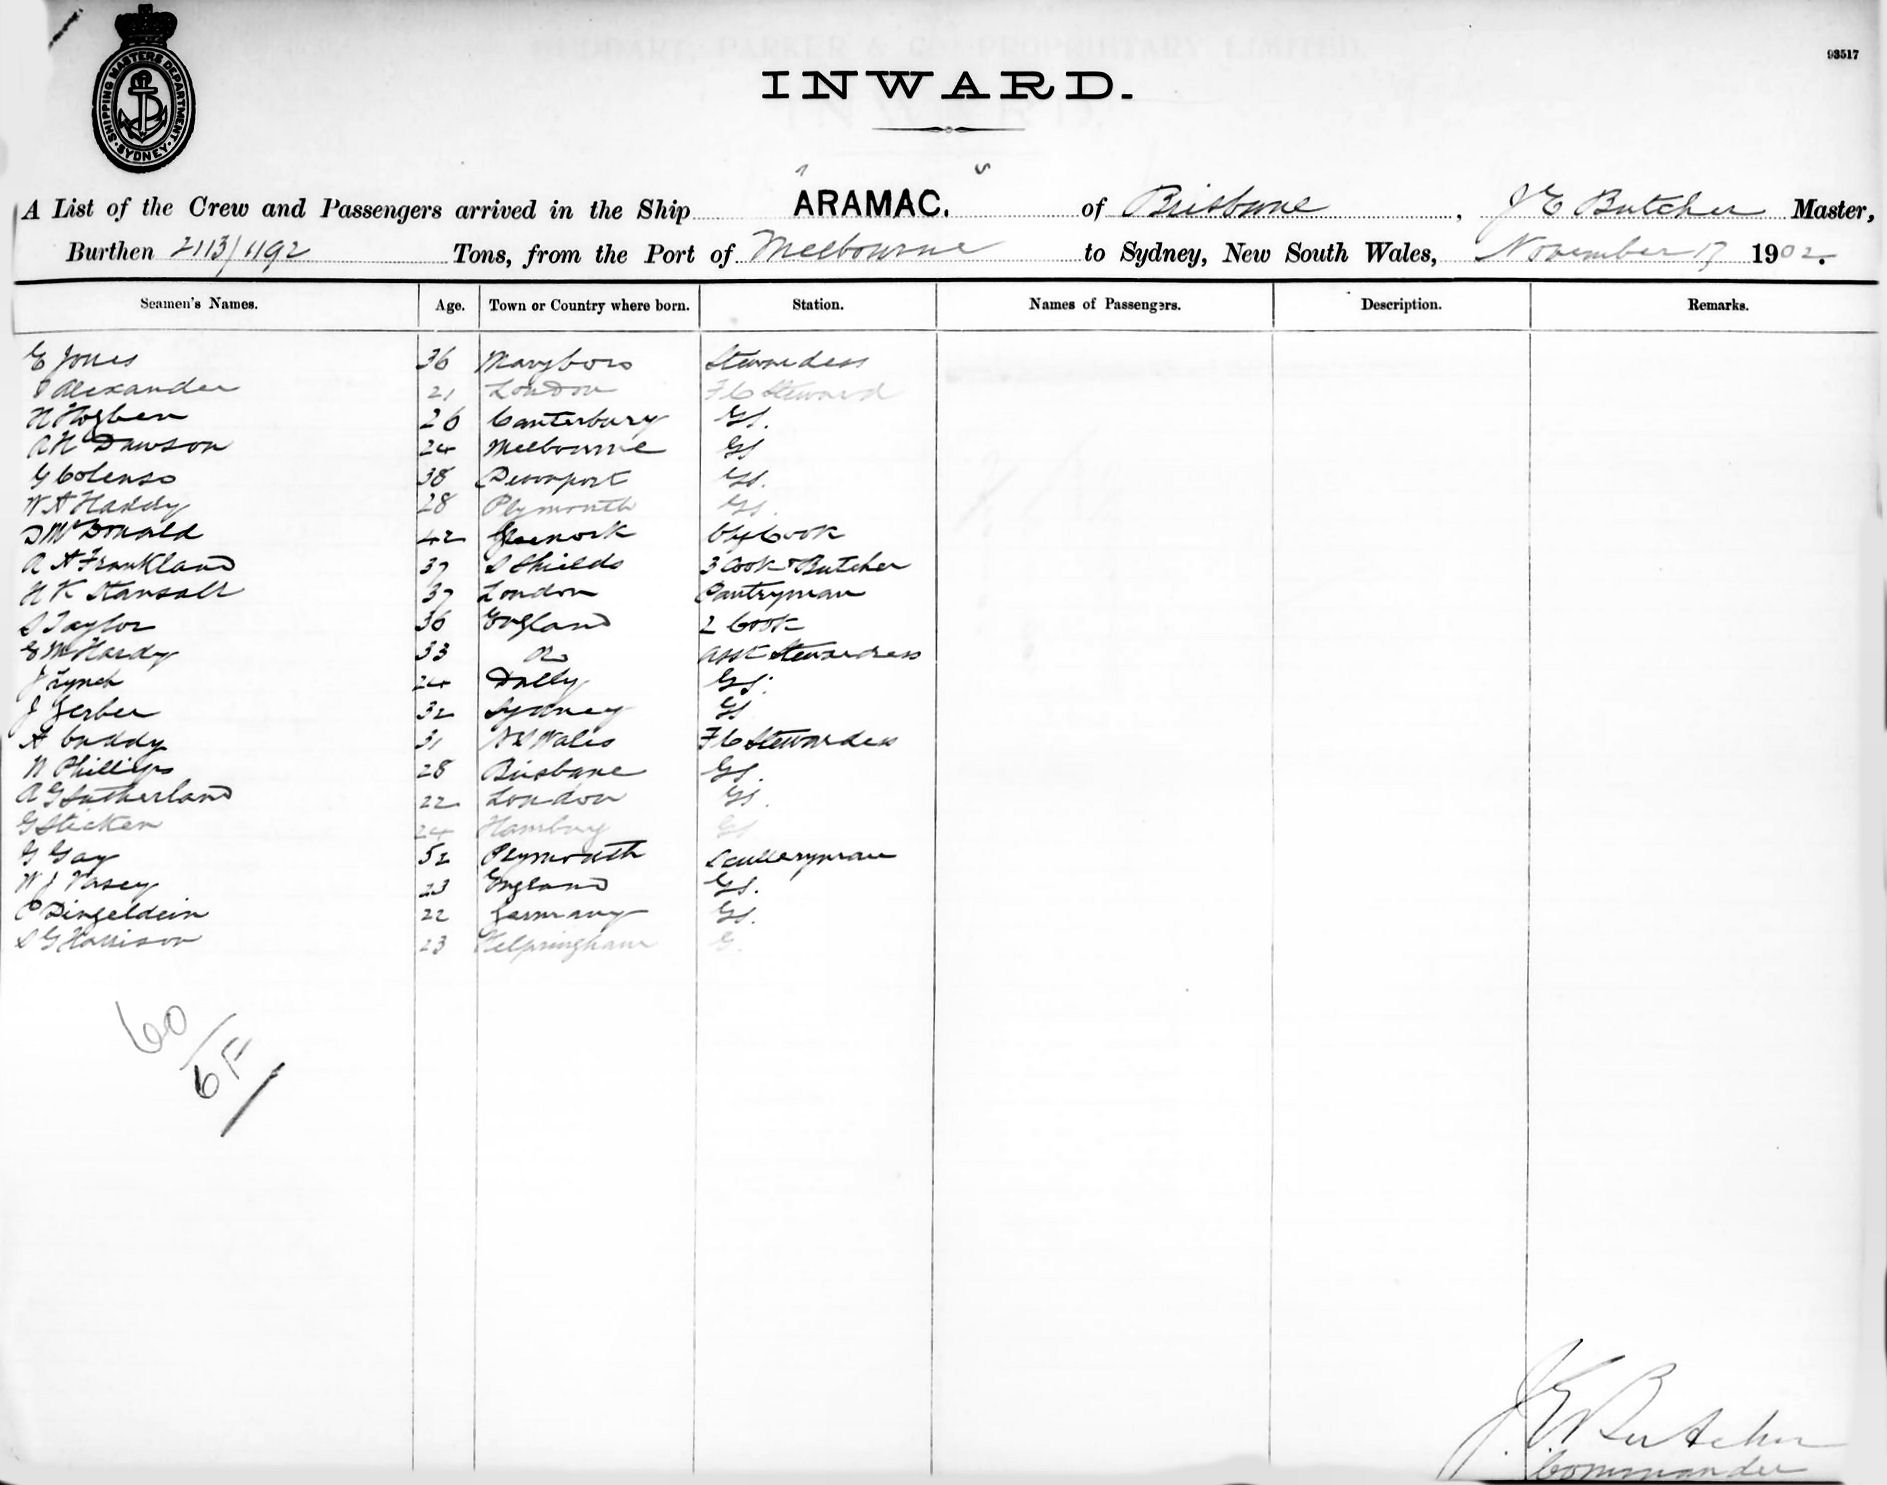 SHIPPING MASTERS DEPARTMENT
SYDNEY
93517
INWARD.
A List of the Crew and Passengers arrived in the Ship ARAMAC. of Brisbane, J E Butcher Master,
Burthen 2113/1192 Tons, from the Port of Melbourne to Sydney, New South Wales, November 17 1902.
Seamen's Names. Age. Town or Country where born. Station. Names of Passengers. Description. Remarks.
E Jones 36 Maryboro Stewardess
Alexander 21 London F C Steward
N Hogben 26 Canterbury GS.
A H Dawson 24 Melbourne GS
G Colenso 38 Devonport GS.
W A Haddy 28 Plymouth GS.
D McDonald 42 Greenock Cook
A A Frankland 37 S Shields 3 Cook & Butcher
H K 37 London Pantryman
S Taylor 36 England 2 Cook
E McHardy 33 Do Asst Stewardess
J Lynch 24 GS.
J Gerber 32 Sydney GS
A Cuddy 31 N S Wales F C Stewardess
N Phillips 28 Brisbane GS.
A G Sutherland 22 London GS.
G 24 Hamburg GS
G Gay 52 Plymouth Sculleryman
W J Vasey 23 England GS.
P Dingeldein 22 Germany GS.
S G Harrison 23 Helpringham G.
60
6F
J E Butcher
Commander